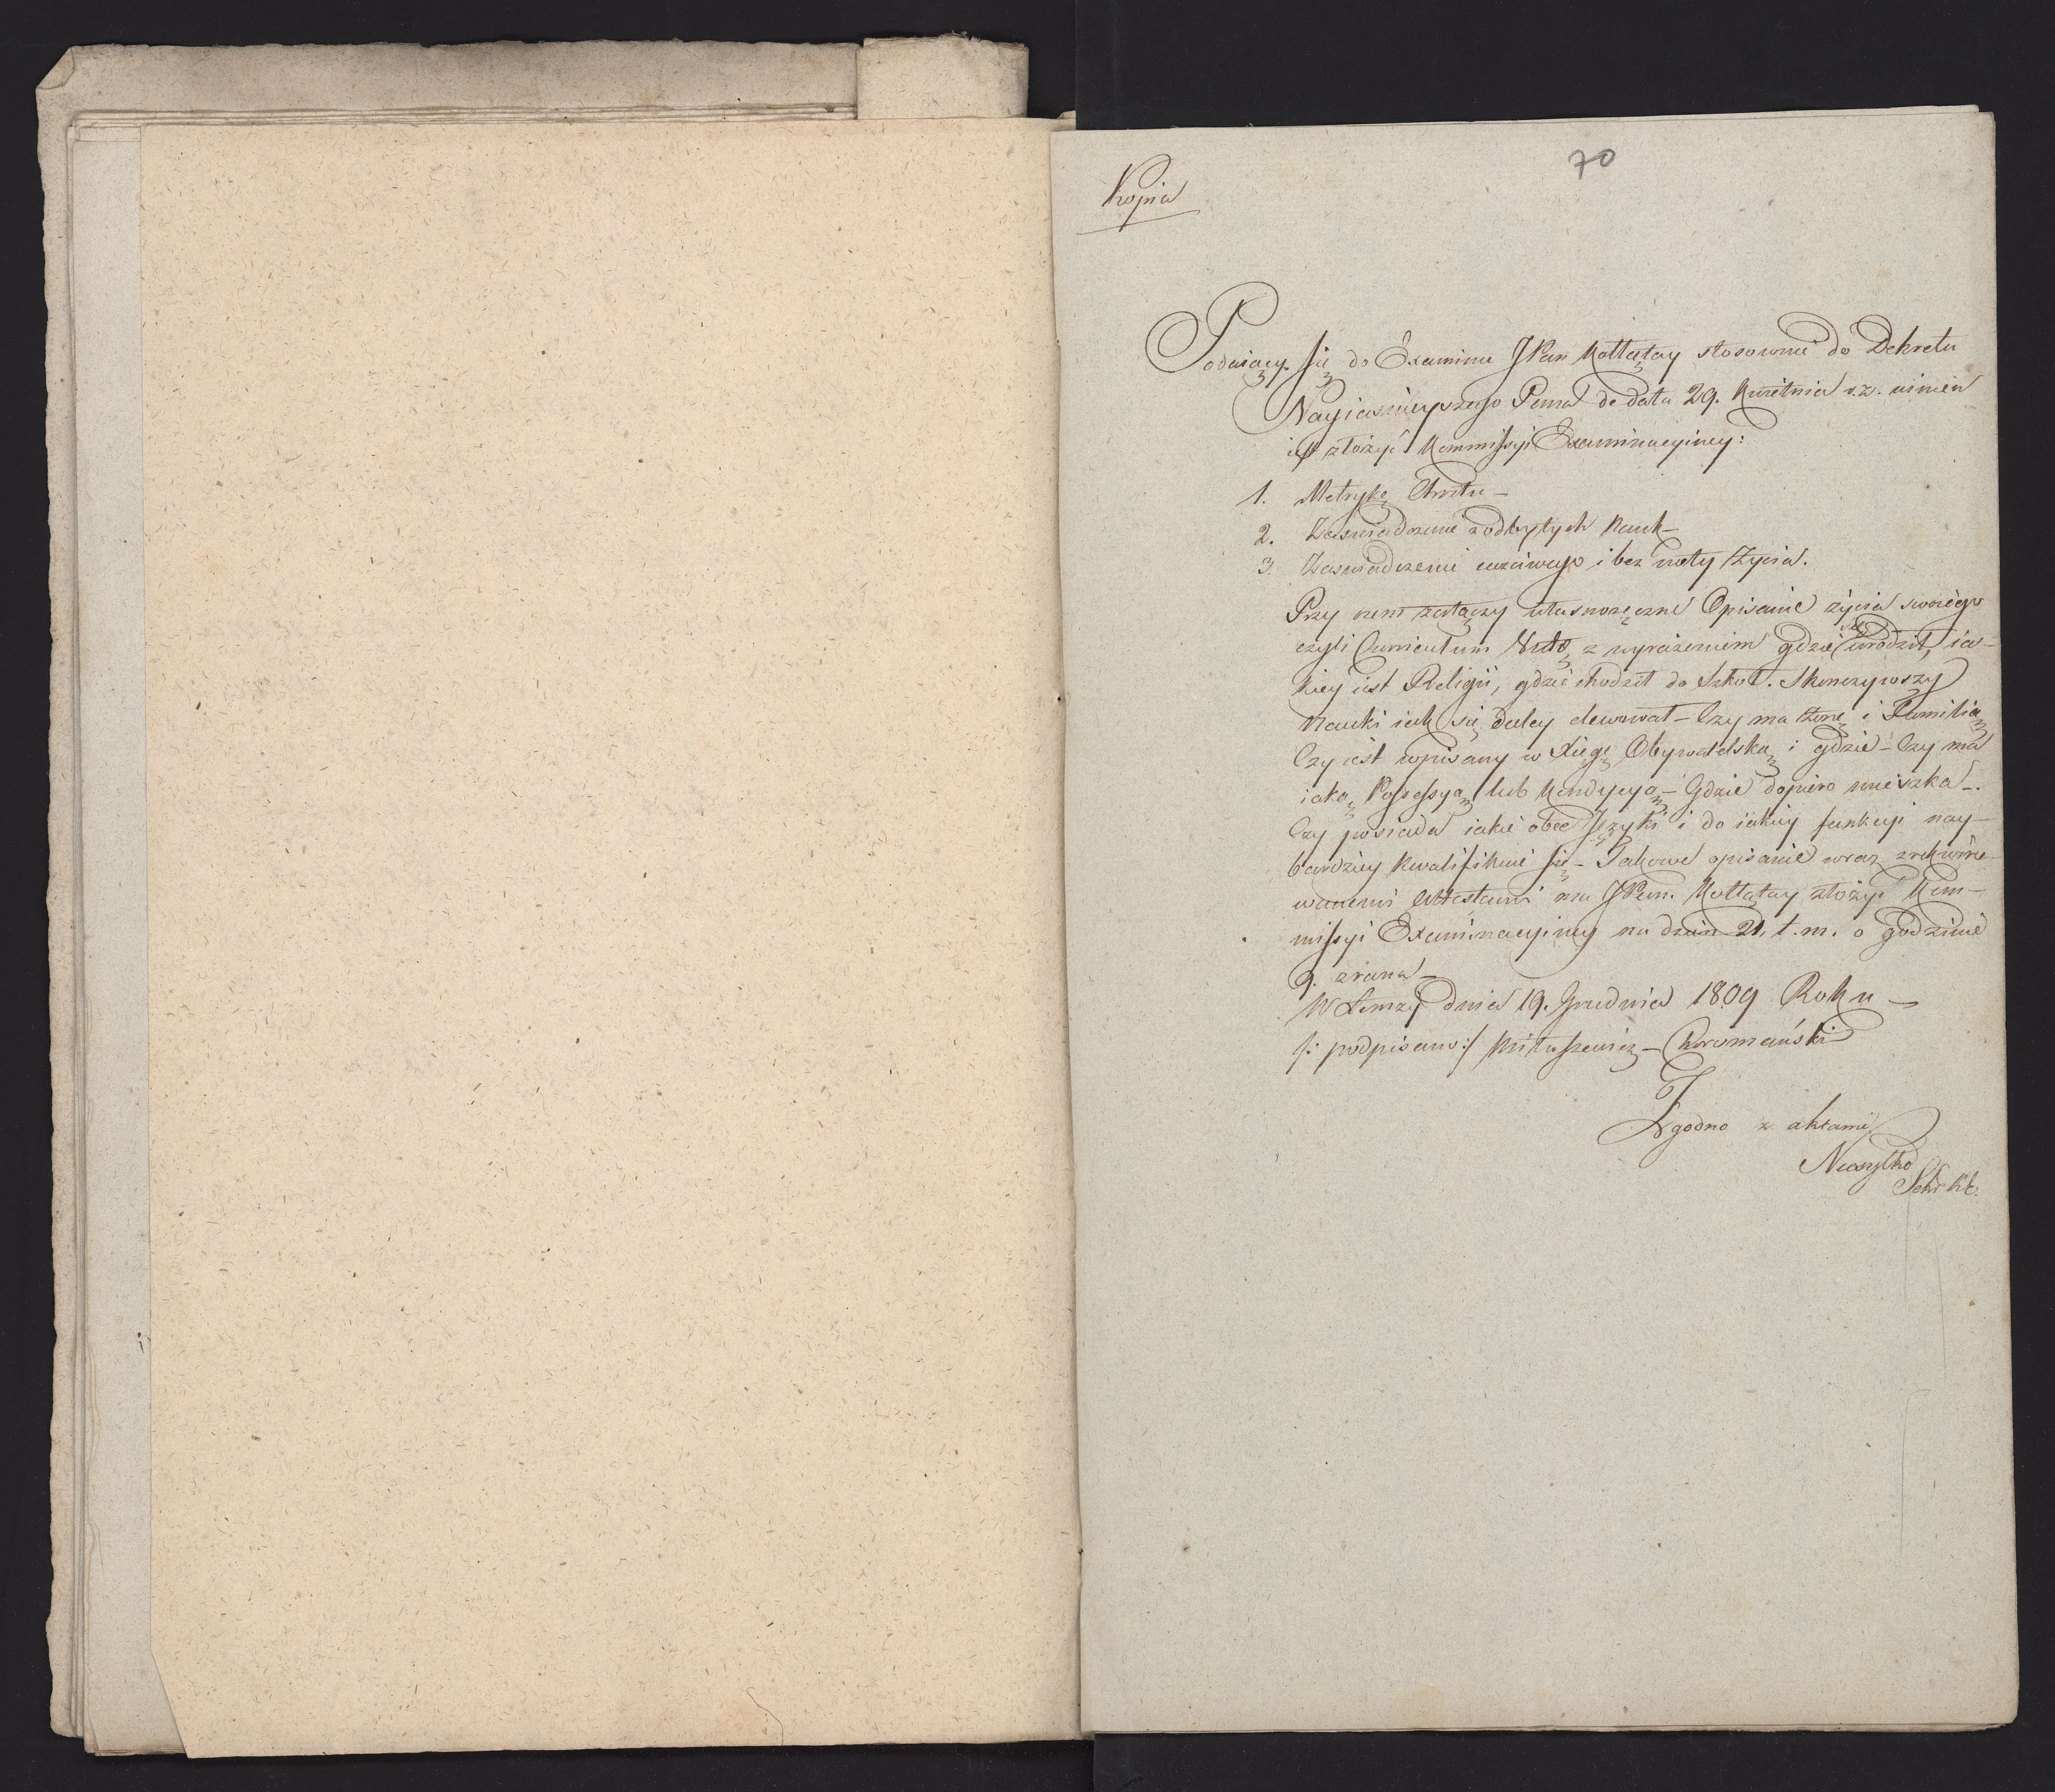 70
Kopia
Podaiący się do Examinu JPan Kołłątay stosownie do Dekretu
Nayiasnieyszego Pana de dato 29. Kwietnia r.z. winien
iest złożyć Kommissyi Examinacyiney:
1. Metrykę Chrztu —
2. Zaswiadczenie z odbytych Nauk —
3. Zaswiadczenie uczciwego i bez noty Życia.
Przy czem załączy własnoręczne Opisanie życia swoiego
czyli Curriculum Vitæ, z wyrażeniem gdzie się urodził, ia-
kiey iest Religii, gdzie chodził do Szkoł. Skonczywszy
Nauki iak się daley — Czy ma Żonę i Familią
Czy iest wpisany w Xięgę Obywatelską i gdzie — Czy ma
iaką Possessyą lub Kondycyą — Gdzie dopiero mieszka —.
Czy posiada iakie obce Języki i do iakiey funkcyi nay-
bardziey kwalifikuie się — Takowe opisanie wraz
Attestami ma JPan. Kołłątay złożyć Kom-
missyi Examinacyiney na dzień 21. t. m. o godzinie
9. zrana —
W Łomży dnia 19. Grudnia 1809 Roku —
/: podpisano :/ — Choromański
Zgodno z aktami
Sekr